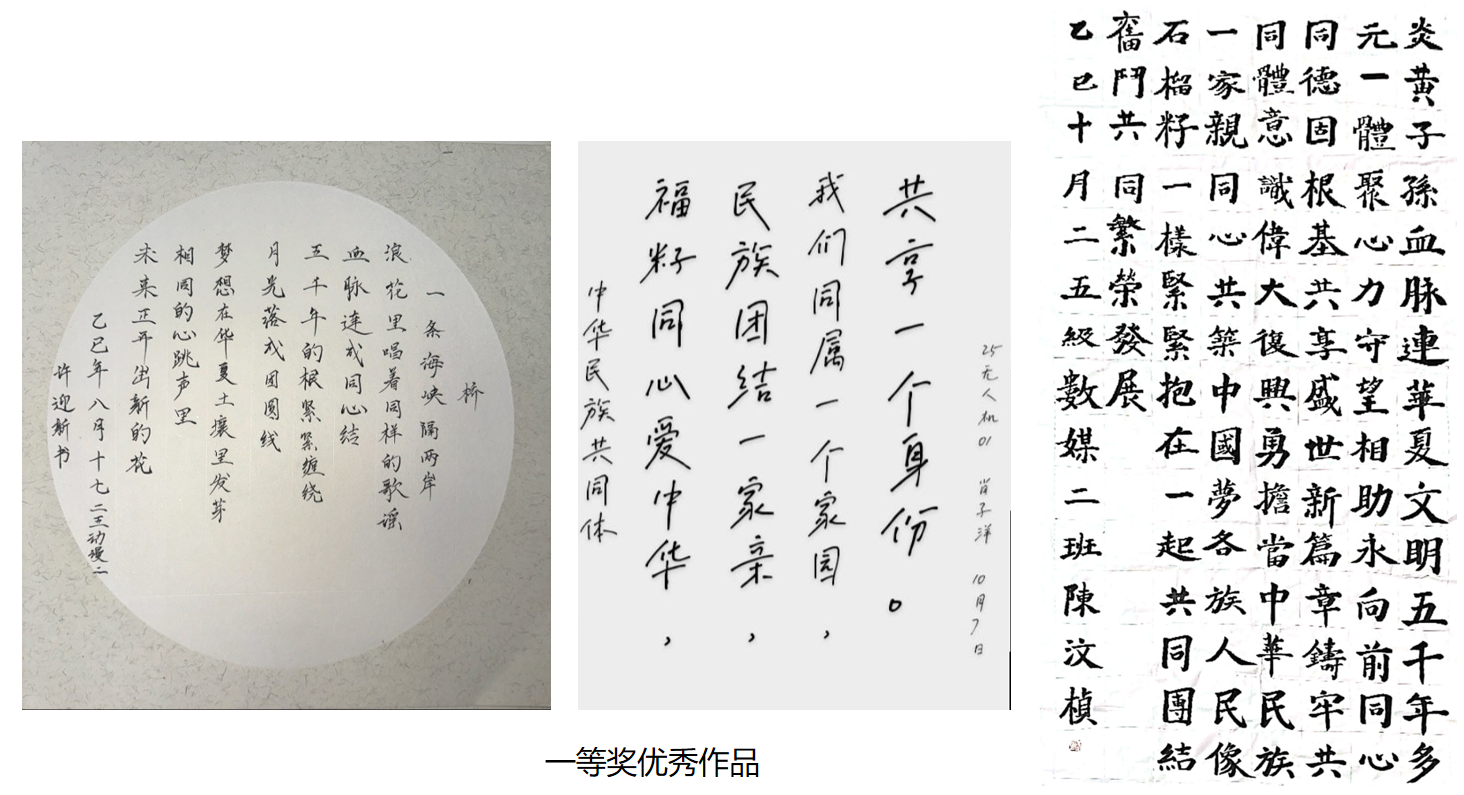 桥
一条海峡隔两岸
浪花里唱着同样的歌谣
血脉连成同心结
五千年的根紧紧缠绕
月光落成团圆线
梦想在华夏土壤里发芽
相同的心跳声里
未来正开出新的花
乙巳年八月十七二三动漫二
许迎新书
中华民族共同体
福籽同心爱中华，
民族团结一家亲，
我们同属一个家园，
共享一个身份。
25无人机01 肖子洋 10月7日
炎黄子孫血脉連華夏文明五千年多
元一體聚心力守望相助永向前同心
同德固根基共享盛世新篇章鑄牢共
同體意識偉大復興勇擔當中華民族
一家親同心共築中國夢各族人民像
石榴籽一樣緊緊抱在一起共同團結
奮鬥共同繁榮發展
乙巳十月二五級數媒二班陳汶楨
一等奖优秀作品